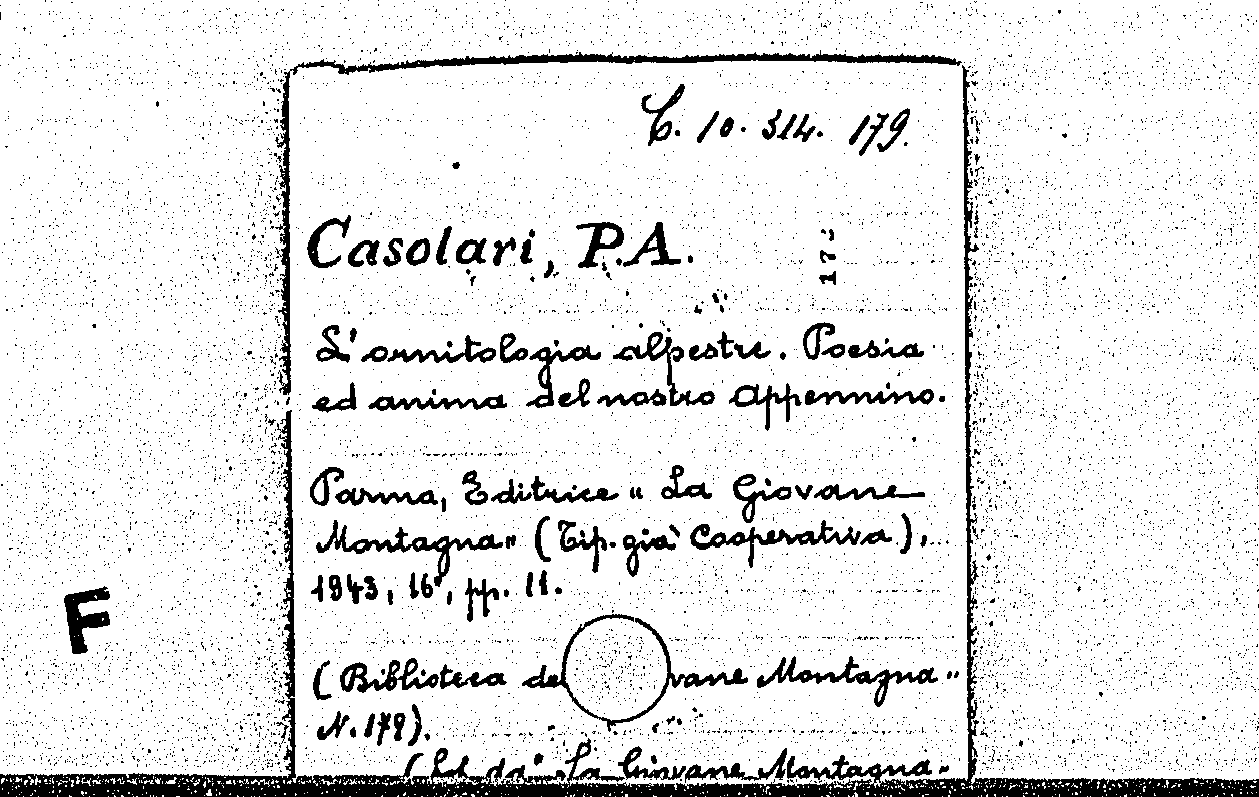 C. 10. 314. 179.
Casolari, P.A.
L'ornitologia alpestre. Poesia
ed anima del nostro Appennino.
Parma, Editrice "La Giovane
Montagna" (Tip. già Cooperativa),
1943, 16°, pp. 11.
F
(Biblioteca de vane Montagna"
N. 179).
La Giovane Montagna